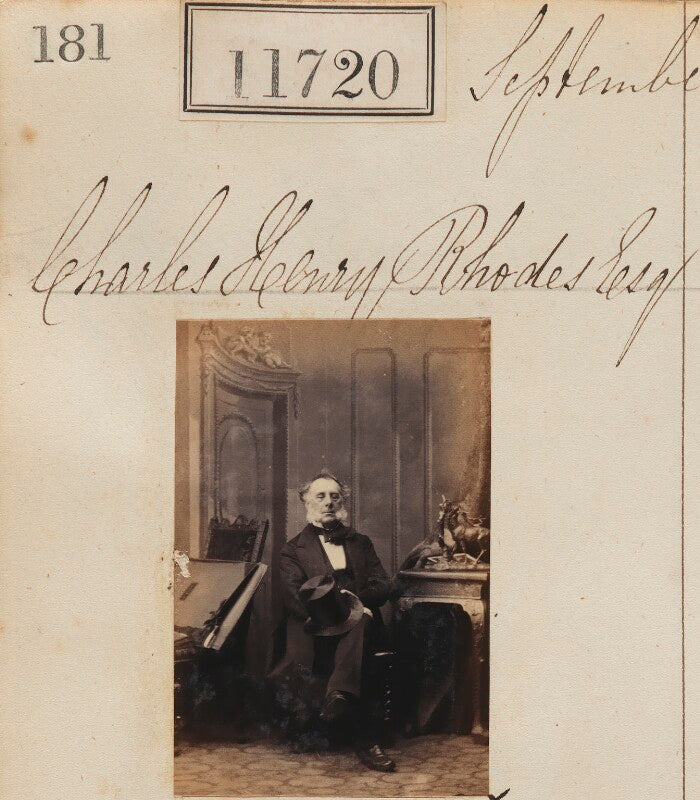 181
11720
Septembe
Charles Henry Rhodes Esq